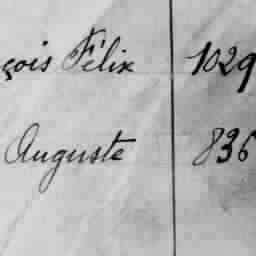 çois Félix 1029
Auguste 836